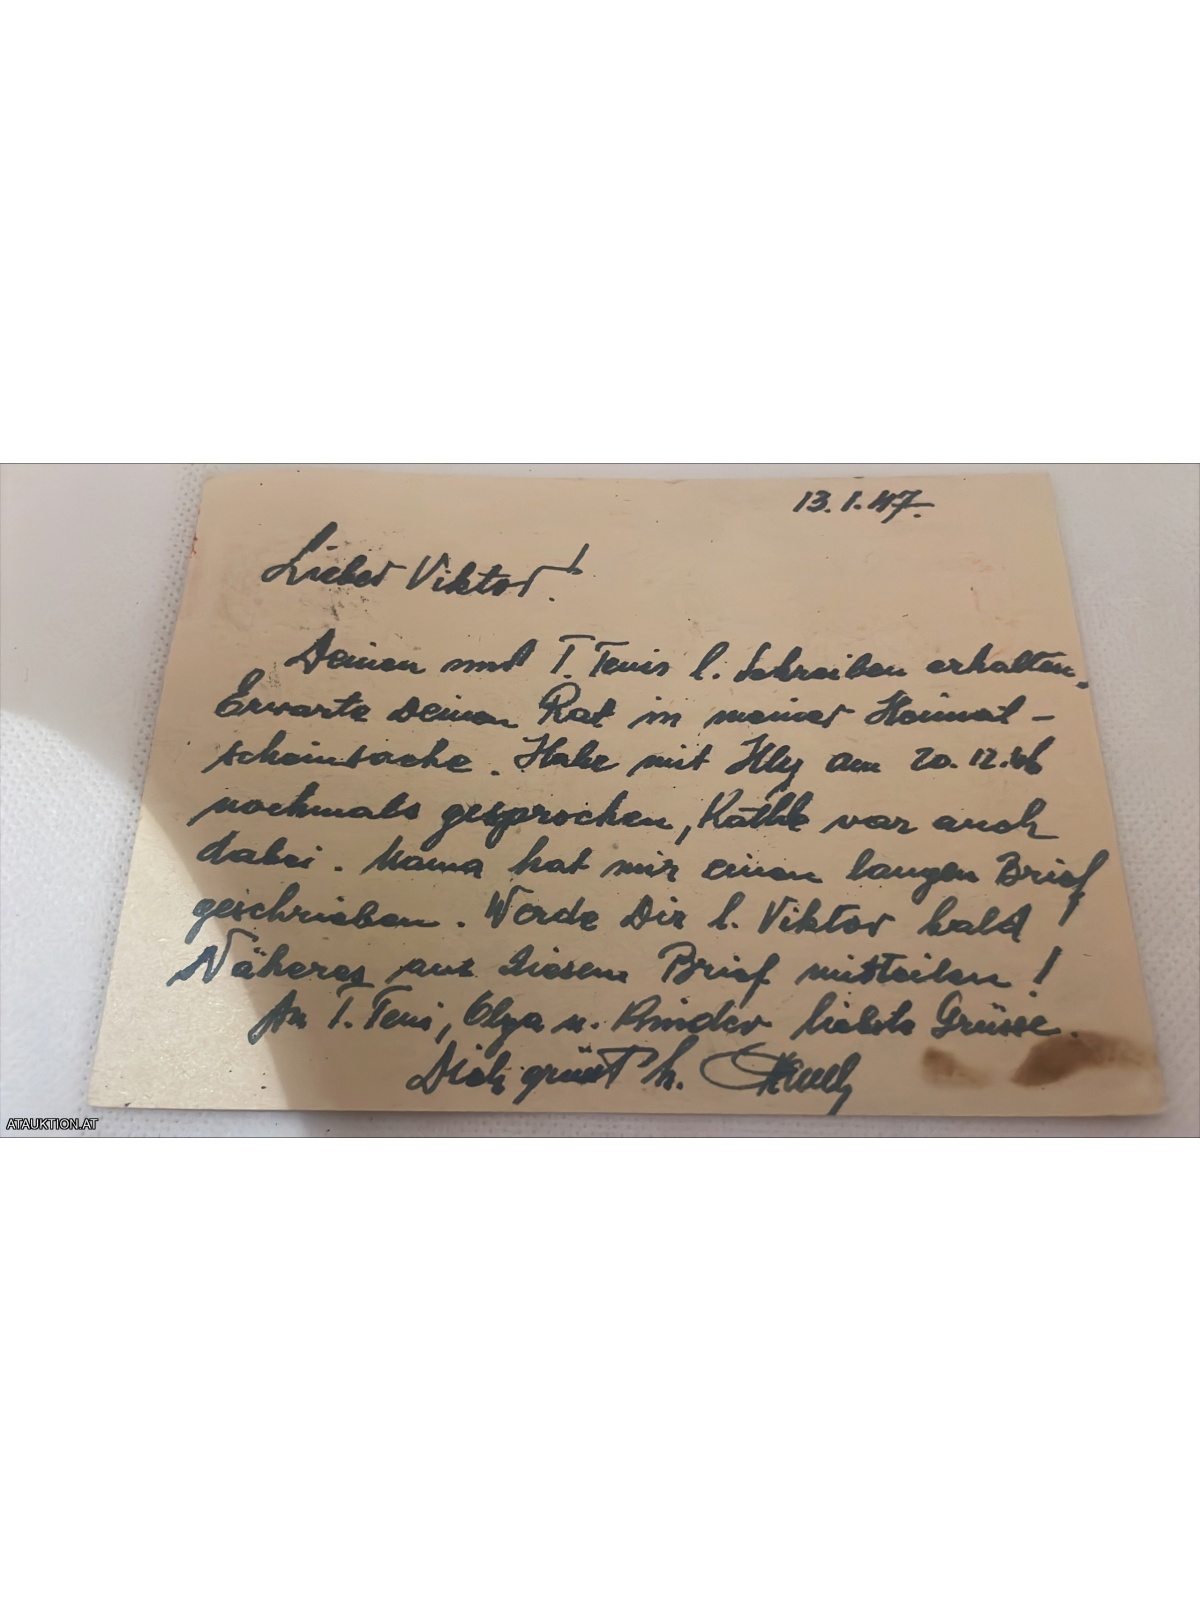 13.1.47.
Lieber Viktor!
Deinen und T. Tenis l. Schreiben erhalten.
Erwarte Deinen Rat in meiner Heimat-
scheinsache. Habe mit Illy am 20.12.46
nochmals gesprochen, Käthe war auch
dabei. Mama hat mir einen langen Brief
geschrieben. Werde Dir l. Viktor bald
Näheres aus diesem Brief mitteilen!
An T. Teni, Olga u. Kinder liebste Grüsse.
Dich grüsst h.
ATAUKTION.AT